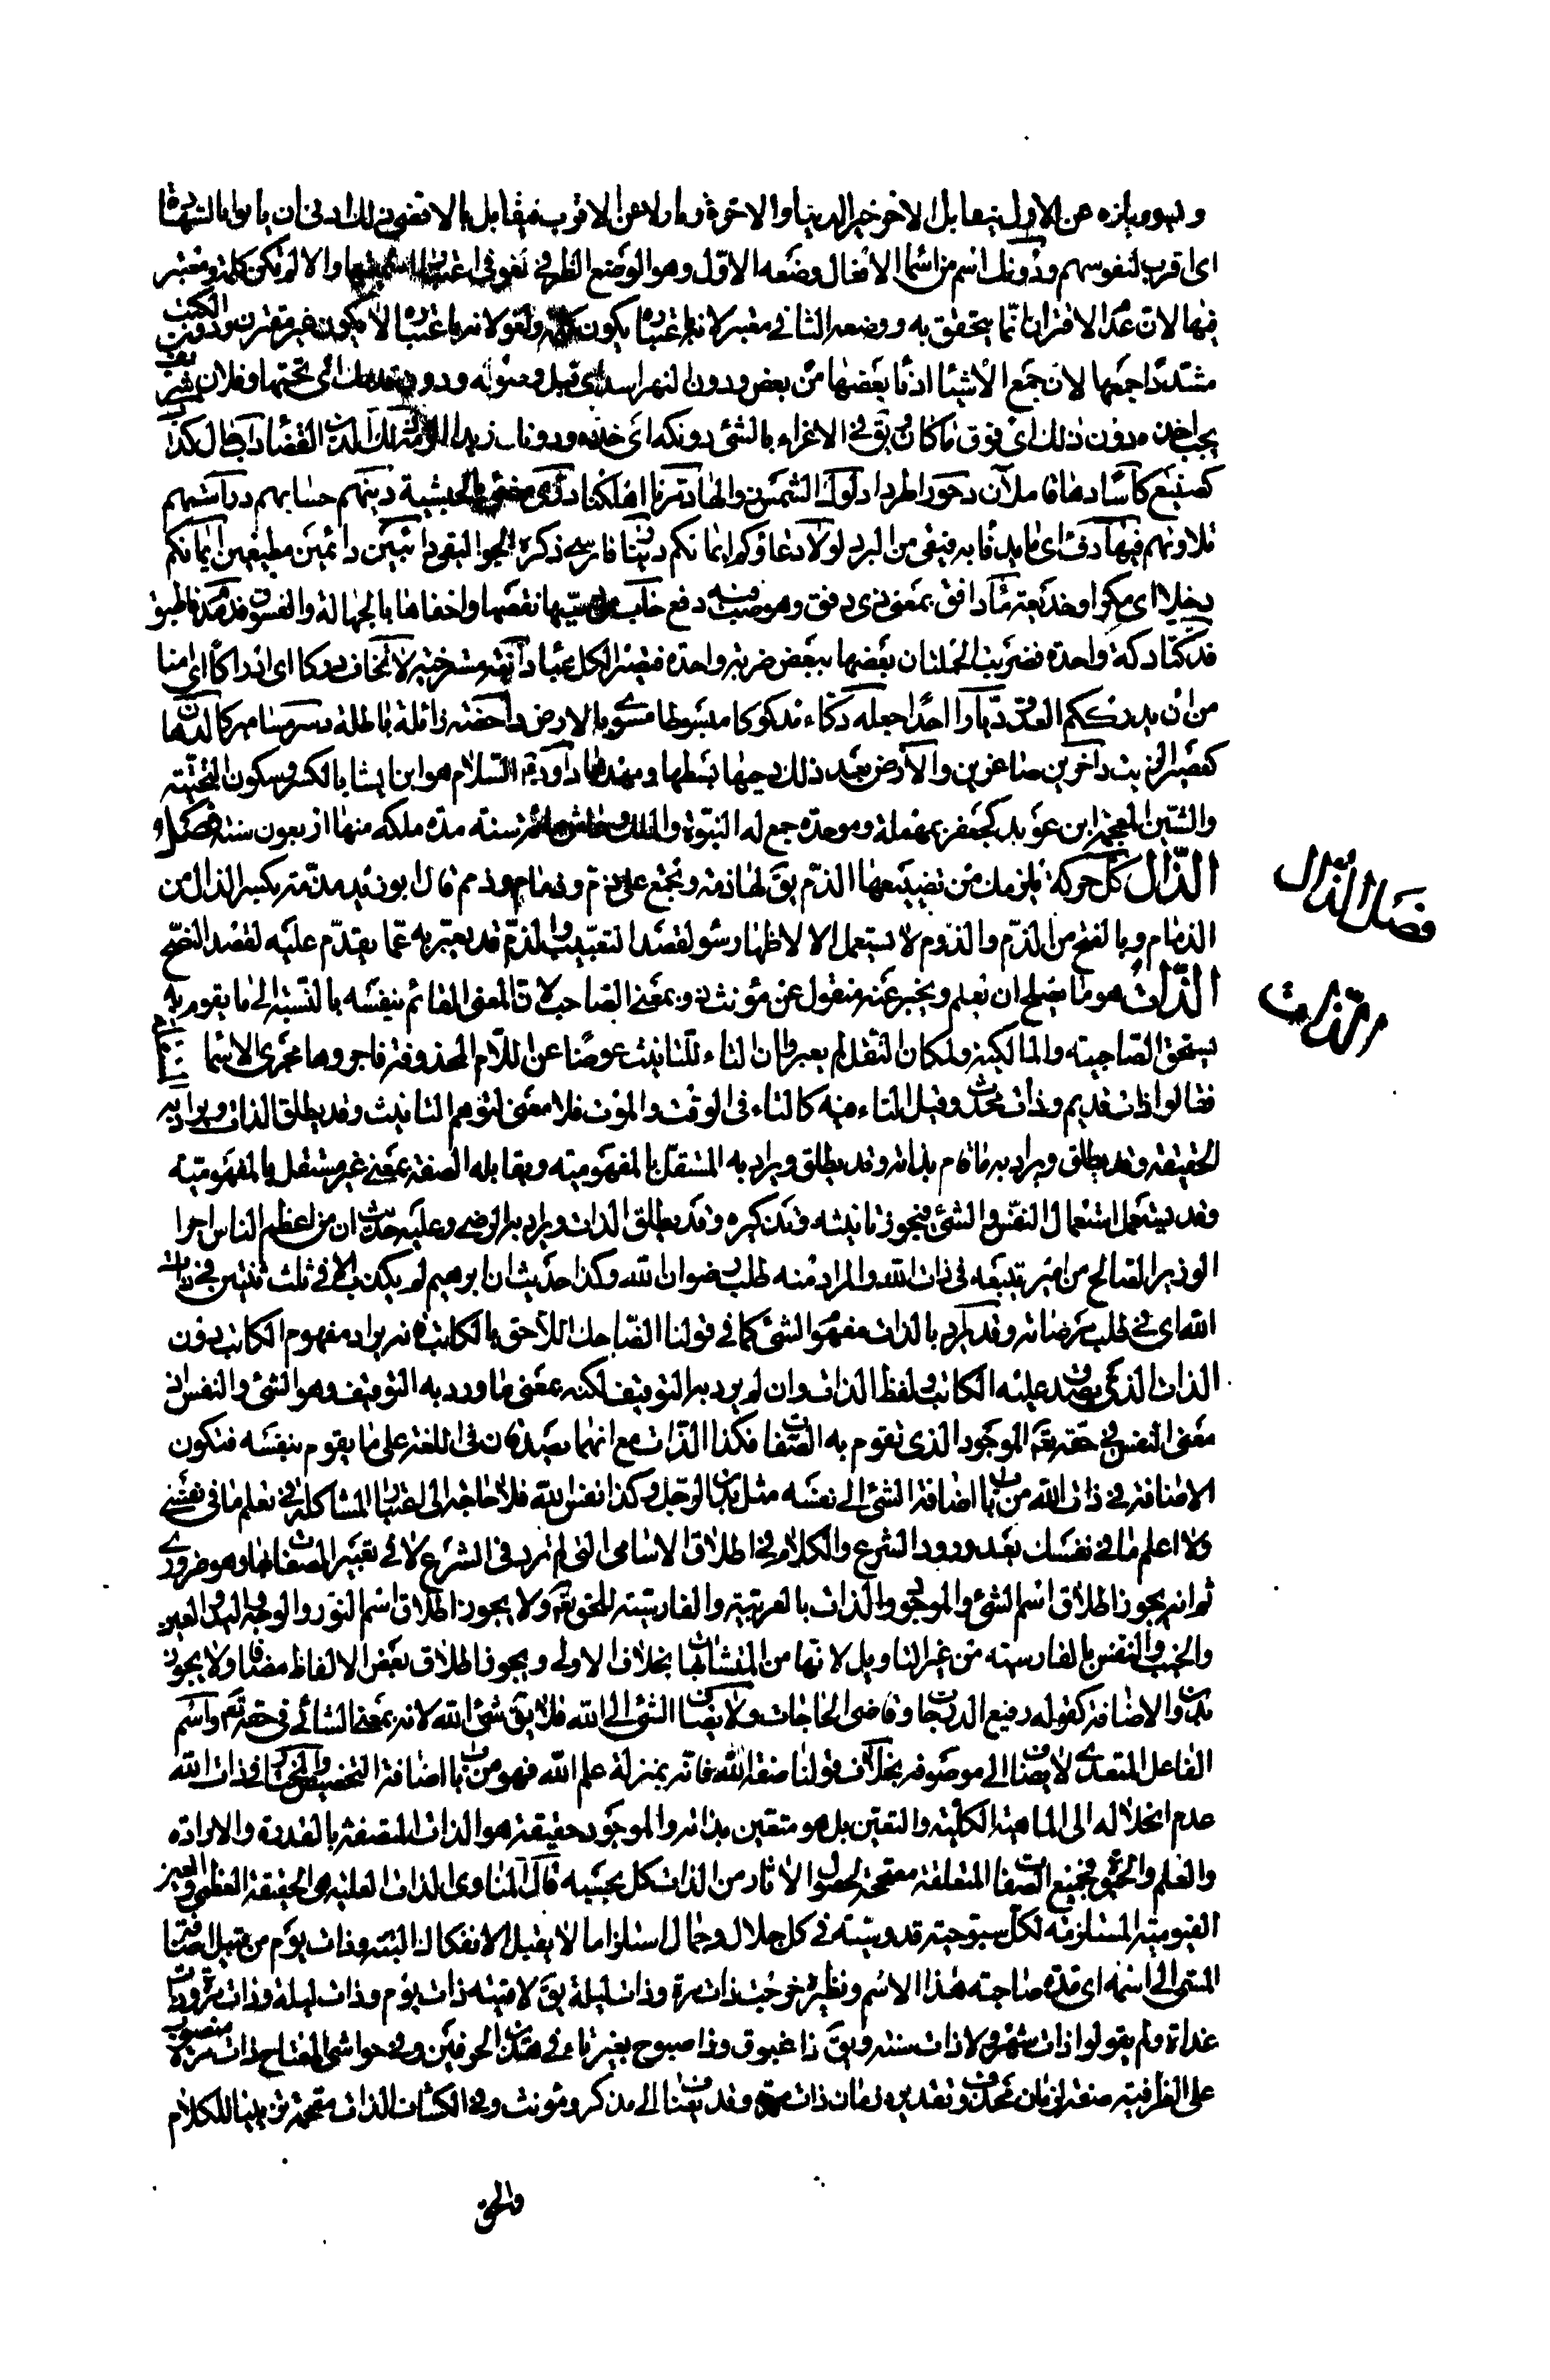 اى اقرب لنفوسهم ودونك اسم من اسما الافعال وضعه الاول وهو الوضع الظرفى والا لم تكن كلمة ومعتبر
فيها لان عدم الاقتران انما يتحقق به ووضعه الثانى معتبر
مشتددا جمعها لان جمع الاشيا ادنا بعضها من بعض ودون النهر اسد اى قبل وصوله ودون قدمك اى تحتها وفلان شريف
يجب اخذه ودون ذلك اى فوق ما كان يق فى الاغراء بالشئ دونكه اى خذه
كصنيع كأسا دهاقا ملآن دحورا طردا دلوك الشمس دينهم حسابهم دراستهم
تلاوتهم فيها دفء اى ما يدفأ به فيقى من البرد لولا دعاؤكم ايمانكم دائبين دائمين مطيعين ايمانكم
دخلا اى مكرا وخديعة ماء دافق بمعنى ذى دفق وهو صب فيه دفع خاب من دسيها نقصها واخفاها بالجهالة والفسوق فدمدم فاطبق
فدكتا دكة واحدة فضربت الجملتان بعضها ببعض ضربة واحدة فيصير الكل هباء لا تخاف دركا
من ان يدرككم العدو ديارا احدا جعله دكاء مدكوكا مبسوطا مسوى بالارض داحضة زائلة باطلة
داخرين صاغرين والارض بعد ذلك دحيها بسطها ومهدها داود عم السلام هو ابن ايشا بالكسر وسكون التحتية
والشين المعجمة ابن عوبد كجعفر بمهملة وموحدة جمع له النبوة والملك سنة مدة ملكه منها اربعون سنة فصل
الذال كل حركة يلزمك من تضييعها الذم يق لها ذمة وتجمع على ذم وذمام وذمم قال ابو زيد مذمة بكسر الذال من
الذمام وبالفتح من الذم والذم لا يستعمل الا لاظهار سوء لقصد التعييب والذم قد يعبر به عما يقدم عليه لقصد النصح
الذات هو ما يصلح ان يعلم ويخبر عنه منقول عن مؤنث ذو بمعنى الصاحب لان المعنى القائم بنفسه بالنسبة الى ما يقوم به
يستحق الصاحبية والمالكية ولمكان النقل لم يعبروا ان التاء للتانيث عوضا عن اللام المحذوفة فاجروها مجرى الاسما
فقالوا ذات قديم وذات محدث وقيل التاء فيه كالتاء فى الوقت والموت فلا معنى لتوهم التانيث وقد يطلق الذات ويراد به
الحقيقة وقد يطلق ويراد به ما قام بذاته وقد يطلق ويراد به المستقل بالمفهومية ويقابله الصفة بمعنى غير مستقل بالمفهومية
وقد يستعمل استعمال النفس والشئ فيجوز تانيثه وتذكيره وقد يطلق الذات ويراد به الرضى وعليه حديث ان من اعظم الناس اجرا
الوزير الصالح من امير يتبعه فى ذات الله والمراد منه طلب رضوان الله وكذا حديث ان ابرهيم لم يكذب الا فى ثلث ثنتين فى ذات
الله اى فى طلب مرضاته وقد يراد بالذات مفهوم الشئ كما فى قولنا الضاحك اللاحق بالكاتب فانه يراد مفهوم الكاتب دون
الذات الذى يصدق عليه الكاتب ولفظ الذات وان لم يرد به التوقيف لكنه بمعنى ما ورد به التوقيف وهو الشئ والنفس اذ
معنى النفس فى حقه تعم الموجود الذى تقوم به الصفات فكذا الذات مع انهما يصدقان فى اللغة على ما يقوم بنفسه فتكون
الاضافة فى ذات الله من باب اضافة الشئ الى نفسه مثل يد الرجل وكذا نفس الله فلا حاجة الى اعتبار المشاكلة فى تعلم ما فى نفسى
ولا اعلم ما فى نفسك بعد ورود الشرع والكلام فى اطلاق الاسامى التى لم ترد فى الشرع لا فى تعبير الصفات بها وهو ضرورى
ثم انه يجوز اطلاق اسم الشئ والموجود والذات بالعربية والفارسية للحق تعم ولا يجوز اطلاق اسم النور والوجه واليد والعين
والجنب والنفس بالفارسية من غير التاويل لانها من المتشابهات بخلاف الاولى ويجوز اطلاق بعض الالفاظ مضافا ولا يجوز
بدون الاضافة كقوله رفيع الدرجات وقاضى الحاجات ولا يضاف الشئ الى الله فلا يق شئ الله لانه بمعنى الشائى فى حقه تعم واسم
الفاعل المتعدى لا يضاف الى موصوفه بخلاف قولنا صفة الله فانه بمنزلة علم الله فهو من باب اضافة وذات الله
عدم انحلاله الى الماهية الكلية والتعين بل هو متعين بذاته والموجود حقيقة هو الذات المتصفة بالقدرة والارادة
والعلم والحيوة فجميع الصفات المتعلقة مصححة لحصول الاثار من الذات كل بحسبه قال المناوى الذات العلية هى الحقيقة العظمى والعين
القيومية المستلزمة لكل سبوحية قدوسية فى كل جلال وجمال استلزاما لا يقبل الانفكاك البتة وذات يوم من قبيل اضافة
المسمى الى اسمه اى مدة صاحبة هذا الاسم ونظيره خرجت ذات مرة وذات ليلة يق لاقيته ذات يوم وذات ليلة وذات مرة وذات
غداة ولم يقولوا ذات شهر ولا ذات سنة ويق ذا غبوق وذا صبوح بغير تاء فى هذين الحرفين وفى حواشى المفتاح ذات مرة منصوب
على الظرفية صفة لزمان محذوف وتقديره زمان ذات مرة وقد يضاف الى مذكر ومؤنث وفى الكشاف الذات مقحمة تزيينا للكلام
والحق
فصل الذال
الذات